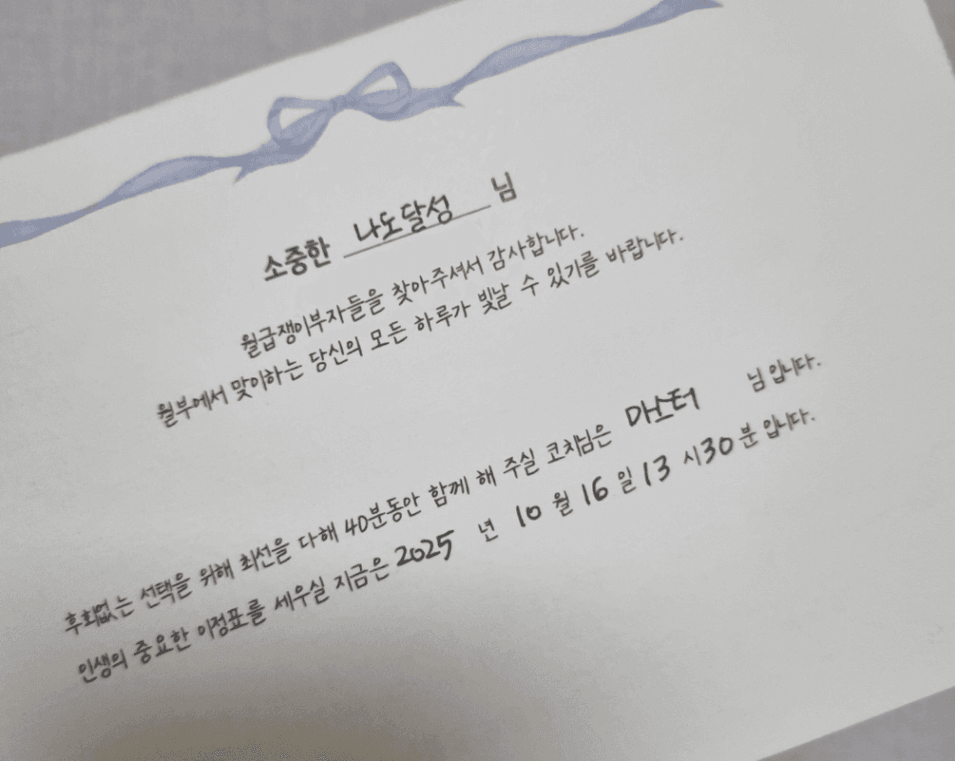 소중한 나도달성 님
월급쟁이부자들을 찾아주셔서 감사합니다.
월부에서 맞이하는 당신의 모든 하루가 빛날 수 있기를 바랍니다.
후회없는 선택을 위해 최선을 다해 40분동안 함께 해 주실 코치님은 마스터 님입니다.
인생의 중요한 이정표를 세우실 지금은 2025 년 10 월 16 일 13 시 30 분입니다.